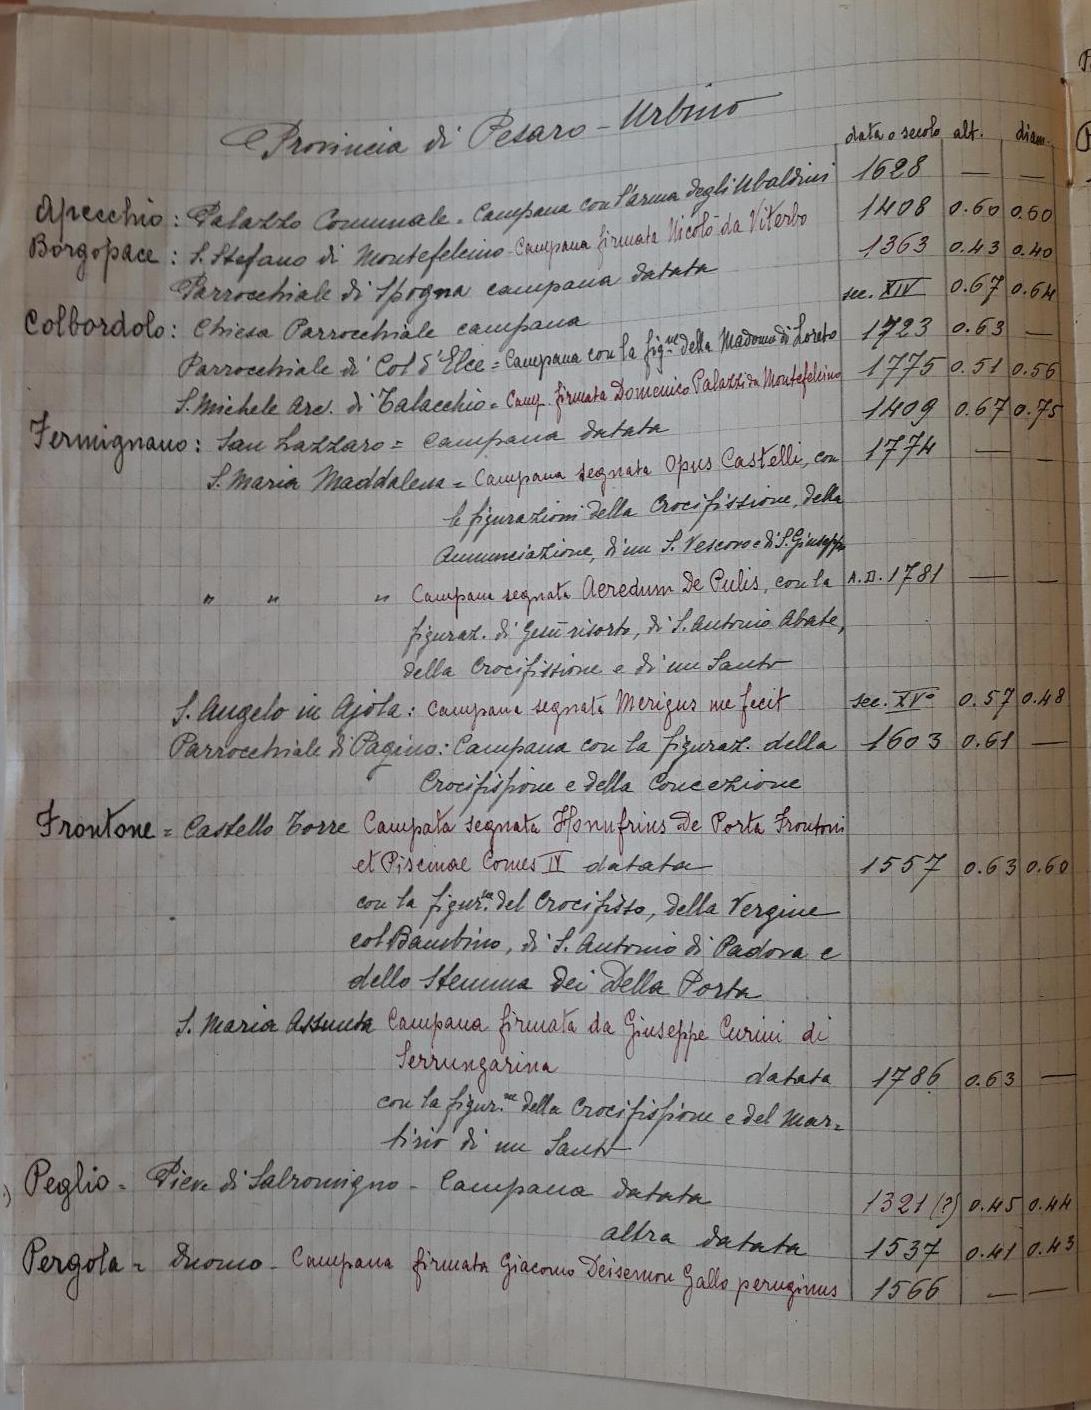 Provincia di Pesaro - Urbino
data o secolo alt. diam.
Apecchio: Palazzo Comunale = Campana con l'arma degli Ubaldini 1628 — —
Borgopace: S. Stefano di Montefelcino - Campana firmata Nicolò da Viterbo 1408 0.60 0.60
Parrocchiale di Spogna campana datata 1363 0.43 0.40
Colbordolo: Chiesa Parrocchiale campana sec. XIV 0.67 0.64
Parrocchiale di Col d'Elce = Campana con la fig.ne della Madonna di Loreto 1723 0.63 —
S. Michele Arc. di Talacchio = Camp. firmata Domenico Palazzi da Montefelcino 1775 0.51 0.56
Fermignano: San Lazzaro = Campana datata 1409 0.67 0.75
S. Maria Maddalena = Campana segnata Opus Castelli, con 1774 — —
le figurazioni della Crocifissione, della
Annunciazione, di un S. Vescovo e di S. Giuseppe
" " " Campana segnata Aeredum De Pulis, con la A.D. 1781 — —
figuraz. di Gesù risorto, di S. Antonio Abate,
della Crocifissione e di un Santo
S. Angelo in Ajola: Campana segnata Merigus me fecit sec. XVº 0.57 0.48
Parrocchiale di Pagino: Campana con la figuraz. della 1603 0.61 —
Crocifissione e della Concezione
Frontone = Castello Torre Campata segnata Honufrius De Porta Frontoni
et Piscinae Comes IV datata 1557 0.63 0.60
con la figur.ne del Crocifisso, della Vergine
col Bambino, di S. Antonio di Padova e
dello Stemma dei Della Porta
S. Maria Assunta Campana firmata da Giuseppe Curini di
Serrungarina datata 1786 0.63 —
con la figur.ne della Crocifissione e del Mar=
tirio di un Santo
Peglio = Pieve di Salromigno - Campana datata 1321 (?) 0.45 0.44
altra datata 1537 0.41 0.43
Pergola = Duomo - Campana firmata Giacomo Deisemon Gallo peruginus 1566 — —